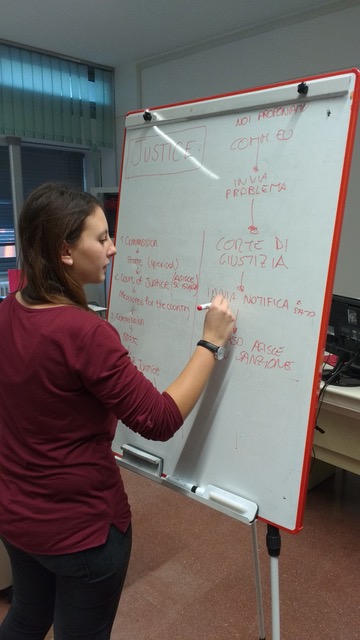 JUSTICE
1. Commission
State (period)
2. Court of Justice
Measures for the country
Commission
Justice
NOI PROPONIAMO
COMM. EU
INVIA
PROBLEMA
CORTE DI
GIUSTIZIA
NOTIFICA A
STATO
AGISCE
SANZIONE